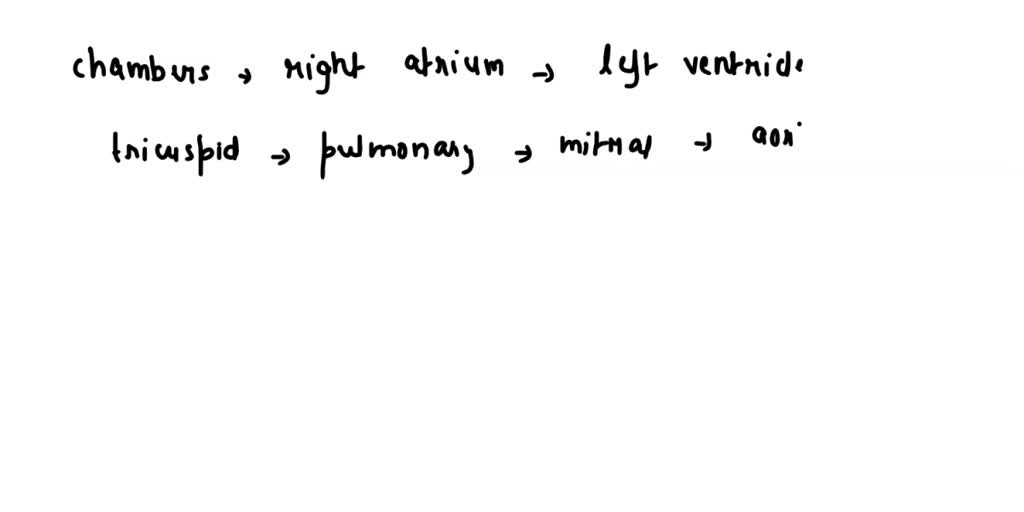 chambers → right atrium → left ventricle
tricuspid → pulmonary → mitral → aor